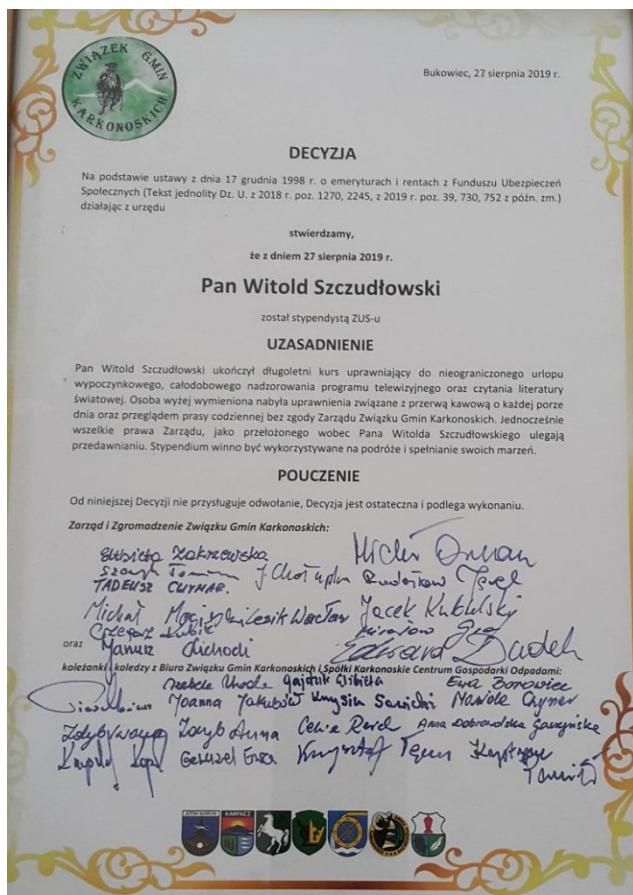 ZWIĄZEK GMIN
KARKONOSKICH
Bukowiec, 27 sierpnia 2019 r.
DECYZJA
Na podstawie ustawy z dnia 17 grudnia 1998 r. o emeryturach i rentach z Funduszu Ubezpieczeń
Społecznych (Tekst jednolity Dz. U. z 2018 r. poz. 1270, 2245, z 2019 r. poz. 39, 730, 752 z późn. zm.)
działając z urzędu
stwierdzamy,
że z dniem 27 sierpnia 2019 r.
Pan Witold Szczudłowski
został stypendystą ZUS-u
UZASADNIENIE
Pan Witold Szczudłowski ukończył długoletni kurs uprawniający do nieograniczonego urlopu
wypoczynkowego, całodobowego nadzorowania programu telewizyjnego oraz czytania literatury
światowej. Osoba wyżej wymieniona nabyła uprawnienia związane z przerwą kawową o każdej porze
dnia oraz przeglądem prasy codziennej bez zgody Zarządu Związku Gmin Karkonoskich. Jednocześnie
wszelkie prawa Zarządu, jako przełożonego wobec Pana Witolda Szczudłowskiego ulegają
przedawnianiu. Stypendium winno być wykorzystywane na podróże i spełnianie swoich marzeń.
POUCZENIE
Od niniejszej Decyzji nie przysługuje odwołanie, Decyzja jest ostateczna i podlega wykonaniu.
Zarząd i Zgromadzenie Związku Gmin Karkonoskich:
Elżbieta Zakrzewska
TADEUSZ
Michał
Jacek
Grzegorz Kubik
oraz
Edward Dudek
koleżanki i koledzy z Biura Związku Gmin Karkonoskich i Spółki Karkonoskie Centrum Gospodarki Odpadami:
Gajduk Elżbieta Ewa Borowiec
Joanna Jakubów Krysia Sawicki
Anna Dobrowolska
Anna
Ewa Krzysztof
KARPACZ